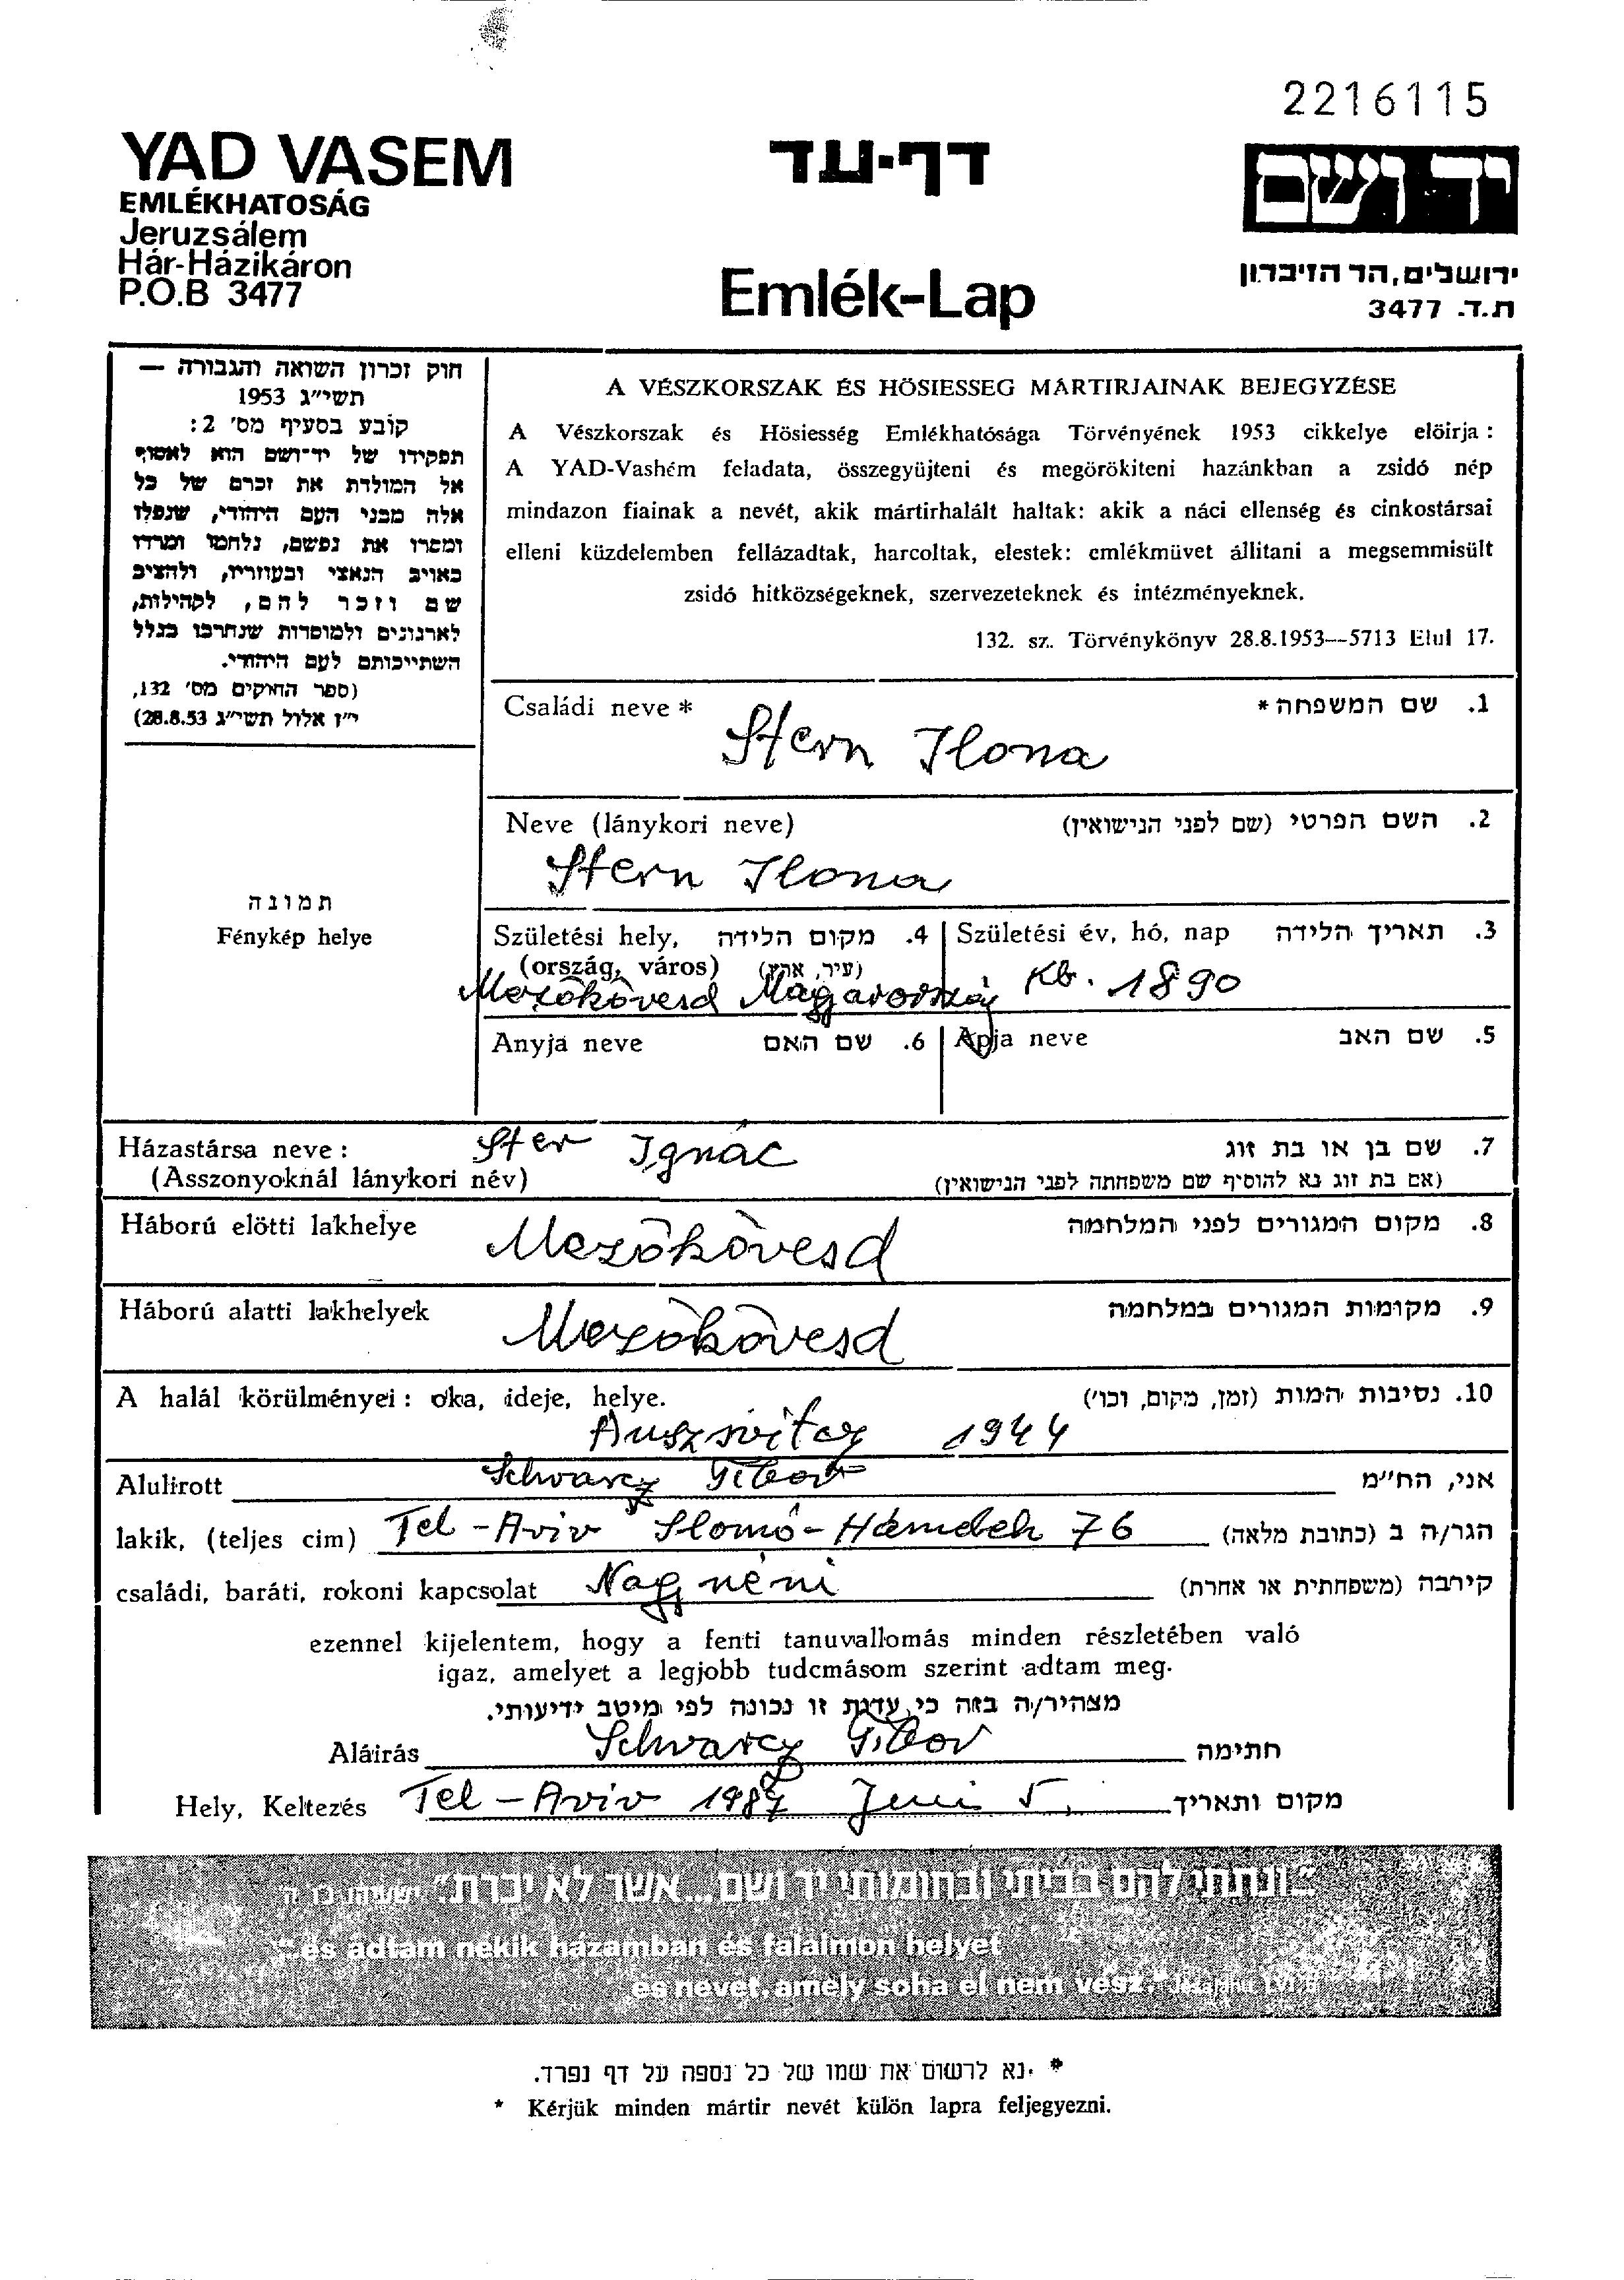 2216115
YAD VASEM
EMLÉKHATOSÁG
Jeruzsálem
Hár-Házikáron
P.O.B 3477
דף-עד
Emlék-Lap
יד ושם
ירושלים, הר הזיכרון
ת.ד. 3477
חוק זכרון השואה והגבורה —
תשי״ג 1953
קובע בסעיף מס׳ 2:
תפקידו של יד-ושם הוא לאסוף
אל המולדת את זכרם של כל
אלה מבני העם היהודי, שנפלו
ומסרו את נפשם, נלחמו ומרדו
באויב הנאצי ובעוזריו, ולהציב
שם וזכר להם, לקהילות,
לארגונים ולמוסדות שנחרבו בגלל
השתייכותם לעם היהודי.
(ספר החוקים מס׳ 132,
י״ז אלול תשי״ג 28.8.53)
תמונה
Fénykép helye
A VÉSZKORSZAK ÉS HÖSIESSEG MARTIRJAINAK BEJEGYZÉSE
A Vészkorszak és Hösiesség Emlékhatósága Törvényének 1953 cikkelye elöirja :
A YAD-Vashém feladata, összegyüjteni és megörökiteni hazánkban a zsidó nép
mindazon fiainak a nevét, akik mártirhalált haltak: akik a náci ellenség és cinkostársai
elleni küzdelemben fellázadtak, harcoltak, elestek: emlékmüvet állitani a megsemmisült
zsidó hitközségeknek, szervezeteknek és intézményeknek.
132. sz. Törvénykönyv 28.8.1953--5713 Elul 17.
Családi neve * 1. שם המשפחה *
Stern Ilona
Neve (lánykori neve) 2. השם הפרטי (שם לפני הנישואין)
Stern Ilona
Születési hely, 4. מקום הלידה
(ország, város) (עיר, ארץ)
Mezőkövesd Magyarország
Születési év, hó, nap 3. תאריך הלידה
Kb. 1890
Anyja neve 6. שם האם
Apja neve 5. שם האב
Házastársa neve : Ster Ignác 7. שם בן או בת זוג
(Asszonyoknál lánykori név) (אם בת זוג נא להוסיף שם משפחתה לפני הנישואין)
Háború elötti lakhelye Mezőkövesd 8. מקום המגורים לפני המלחמה
Háború alatti lakhelyek Mezőkövesd 9. מקומות המגורים במלחמה
A halál körülményei : oka, ideje, helye. 10. נסיבות המות (זמן, מקום, וכו׳)
Auszvitcz 1944
Alulirott Schwarcz Tibor אני, הח״מ
lakik, (teljes cim) Tel-Aviv Slomó-Hámelch 76 הגר/ה ב (כתובת מלאה)
családi, baráti, rokoni kapcsolat Nagynéni קירבה (משפחתית או אחרת)
ezennel kijelentem, hogy a fenti tanuvallomás minden részletében való
igaz, amelyet a legjobb tudcmásom szerint adtam meg.
מצהיר/ה בזה כי עדות זו נכונה לפי מיטב ידיעותי.
Aláirás Schwarcz Tibor חתימה
Hely, Keltezés Tel-Aviv 1987 Juni 5. מקום ותאריך
״ונתתי להם בביתי ובחומותי יד ושם...אשר לא יכרת״ ישעיהו נו ה
"..és adtam nékik házamban és falaimon helyet
és nevet, amely soha el nem vész."
* נא לרשום את שמו של כל נספה על דף נפרד.
* Kérjük minden mártir nevét külön lapra feljegyezni.